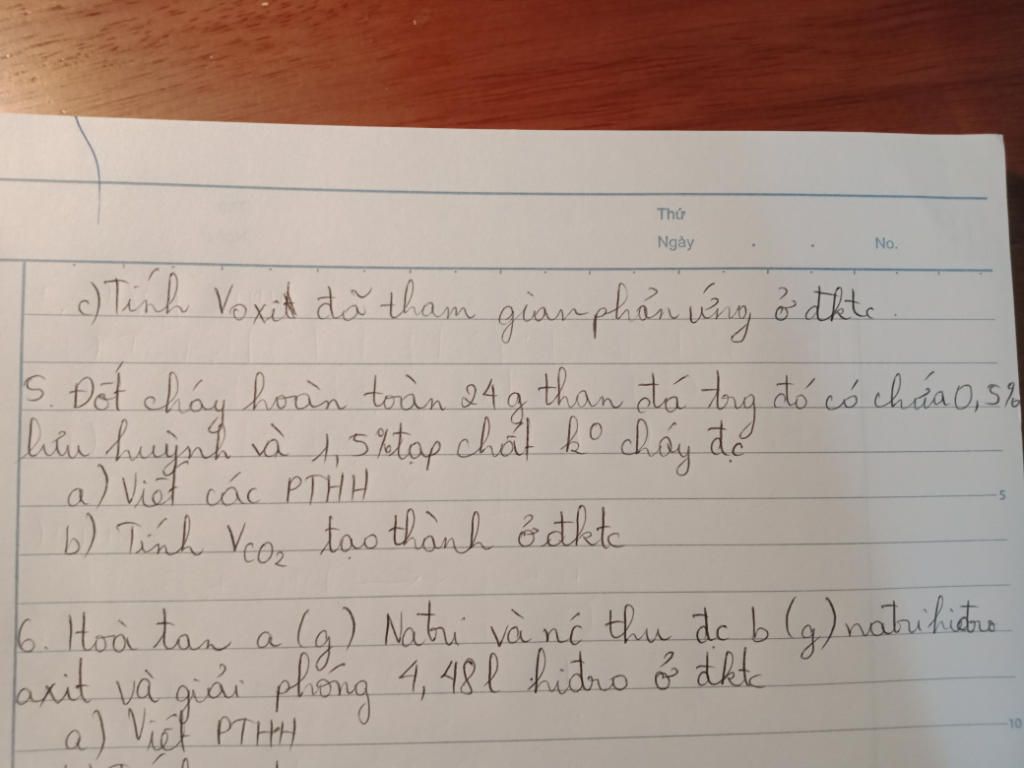 Thứ
Ngày . . No.
c) Tính Voxit đã tham gian phản ứng ở đktc.
5. Đốt cháy hoàn toàn 24g than đá trg đó có chứa 0,5%
lưu huỳnh và 1,5% tạp chất kº cháy đc
a) Viết các PTHH
5
b) Tính VCO2 tạo thành ở đktc
6. Hoà tan a (g) Natri và nc thu đc b (g) natrihiđro
axit và giải phóng 4,48l hiđro ở đktc
a) Viết PTHH
10